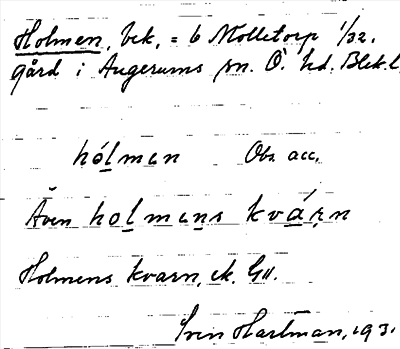 Holmen, bek, = 6 Mölletorp 1/32.
gård i Augerums sn. Ö. hd. Blek.l
hólmen Obs. acc.
Även holmens kvárn
Holmens kvarn, ek. G11.
Sven Hartman, 193.